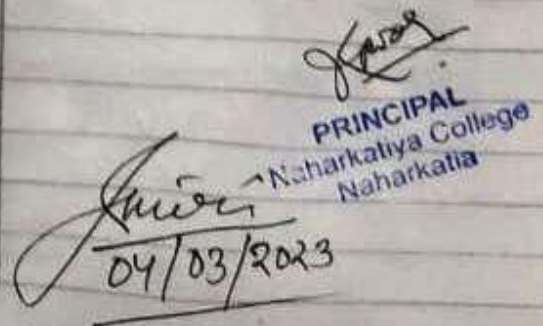 PRINCIPAL
Naharkatiya College
Naharkatia
04/03/2023